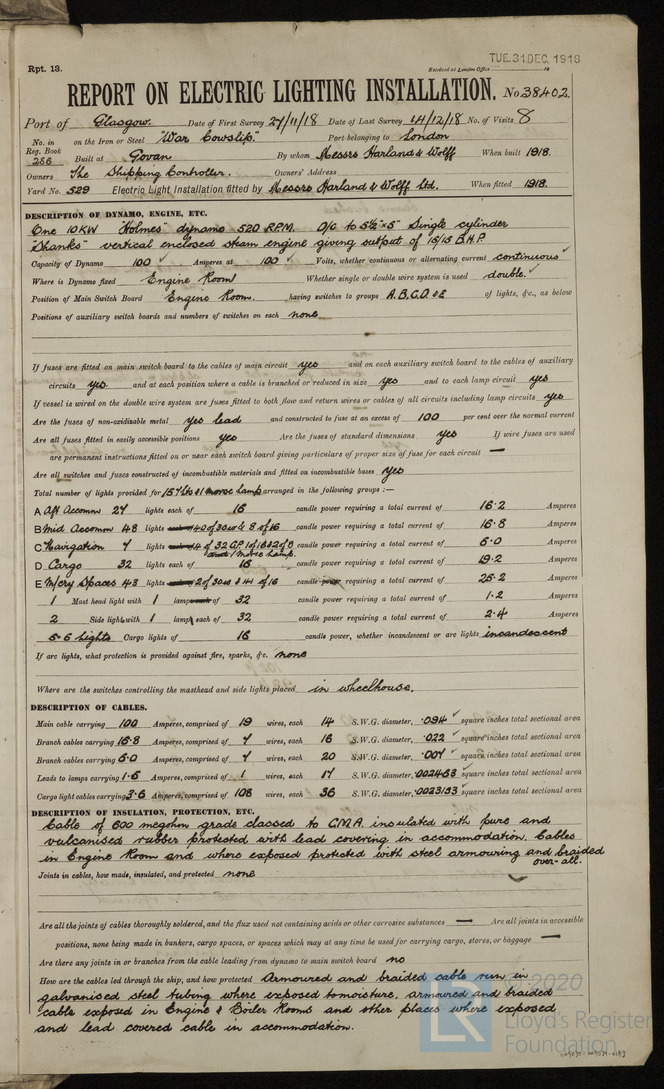 TUE. 31 DEC. 1918
Rpt. 13.
Received at London Office
REPORT ON ELECTRIC LIGHTING INSTALLATION. No 38402.
Port of Glasgow. Date of First Survey 27/11/18 Date of Last Survey 14/12/18 No. of Visits 8
No. in Reg. Book 256 on the Iron or Steel "War Cowslip." Port belonging to London
Built at Govan By whom Messrs Harland & Wolff When built 1918.
Owners The Shipping Controller. Owners' Address
Yard No. 529 Electric Light Installation fitted by Messrs Harland & Wolff Ltd. When fitted 1918.
DESCRIPTION OF DYNAMO, ENGINE, ETC.
One 10 KW "Holmes" dynamo 520 R.P.M. D/C to 5½"x5" Single cylinder
"Shanks" vertical enclosed steam engine giving output of 15/18 B.H.P.
Capacity of Dynamo 100 Amperes at 100 Volts, whether continuous or alternating current continuous
Where is Dynamo fixed Engine Room Whether single or double wire system is used double.
Position of Main Switch Board Engine Room. having switches to groups A.B.C.D & E of lights, &c., as below
Positions of auxiliary switch boards and numbers of switches on each none
If fuses are fitted on main switch board to the cables of main circuit yes and on each auxiliary switch board to the cables of auxiliary
circuits yes. and at each position where a cable is branched or reduced in size yes and to each lamp circuit yes
If vessel is wired on the double wire system are fuses fitted to both flow and return wires or cables of all circuits including lamp circuits yes
Are the fuses of non-oxidizable metal yes lead and constructed to fuse at an excess of 100 per cent over the normal current
Are all fuses fitted in easily accessible positions yes Are the fuses of standard dimensions yes If wire fuses are used
are permanent instructions fitted on or near each switch board giving particulars of proper size of fuse for each circuit —
Are all switches and fuses constructed of incombustible materials and fitted on incombustible bases yes
Total number of lights provided for 157 lts & 1 morse lamp arranged in the following groups :—
A Aft Accomm 27 lights each of 16 candle power requiring a total current of 16.2 Amperes
B Mid Accomm 48 lights 40 of 30w & 8 of 16 candle power requiring a total current of 16.8 Amperes
C Navigation 7 lights 4 of 32 C.P. 1 of 16 & 2 of 8 and 1 morse lamp. candle power requiring a total current of 6.0 Amperes
D Cargo 32 lights each of 16 candle power requiring a total current of 19.2 Amperes
E M/cry Spaces 43 lights 2 of 30w & 41 of 16 candle power requiring a total current of 25.2 Amperes
1 Mast head light with 1 lamp each of 32 candle power requiring a total current of 1.2 Amperes
2 Side light with 1 lamp each of 32 candle power requiring a total current of 2.4 Amperes
5-6 Lights Cargo lights of 16 candle power, whether incandescent or arc lights incandescent
If arc lights, what protection is provided against fire, sparks, &c. none
Where are the switches controlling the masthead and side lights placed in wheelhouse.
DESCRIPTION OF CABLES.
Main cable carrying 100 Amperes, comprised of 19 wires, each 14 S.W.G. diameter, .094 square inches total sectional area
Branch cables carrying 16.8 Amperes, comprised of 7 wires, each 16 S.W.G. diameter, .022 square inches total sectional area
Branch cables carrying 6.0 Amperes, comprised of 7 wires, each 20 S.W.G. diameter, .007 square inches total sectional area
Leads to lamps carrying 1.6 Amperes, comprised of 1 wires, each 17 S.W.G. diameter, .002463 square inches total sectional area
Cargo light cables carrying 3.6 Amperes, comprised of 108 wires, each 36 S.W.G. diameter, square inches total sectional area
DESCRIPTION OF INSULATION, PROTECTION, ETC.
Cable of 600 megohm grade classed to C.M.A. insulated with pure and
vulcanised rubber protected with lead covering in accommodation. Cables
in Engine Room and where exposed protected with steel armouring and braided
over-all.
Joints in cables, how made, insulated, and protected none
Are all the joints of cables thoroughly soldered, and the flux used not containing acids or other corrosive substances — Are all joints in accessible
positions, none being made in bunkers, cargo spaces, or spaces which may at any time be used for carrying cargo, stores, or baggage —
Are there any joints in or branches from the cable leading from dynamo to main switch board no
How are the cables led through the ship, and how protected Armoured and braided cable run in
galvanised steel tubing where exposed to moisture, armoured and braided
cable exposed in Engine & Boiler Rooms and other places where exposed
and lead covered cable in accommodation.
© 2020
LR
Lloyd's Register
Foundation